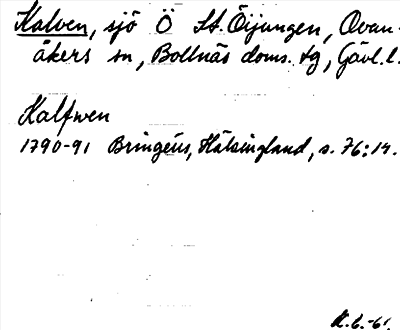 Kalven, sjö Ö St. Öijungen, Ovan-
åkers sn, Bollnäs doms. tg, Gävl. l.
Kalfwen
1790-91 Bringéus, Hälsingland, s. 76:14.
K.L.-61.